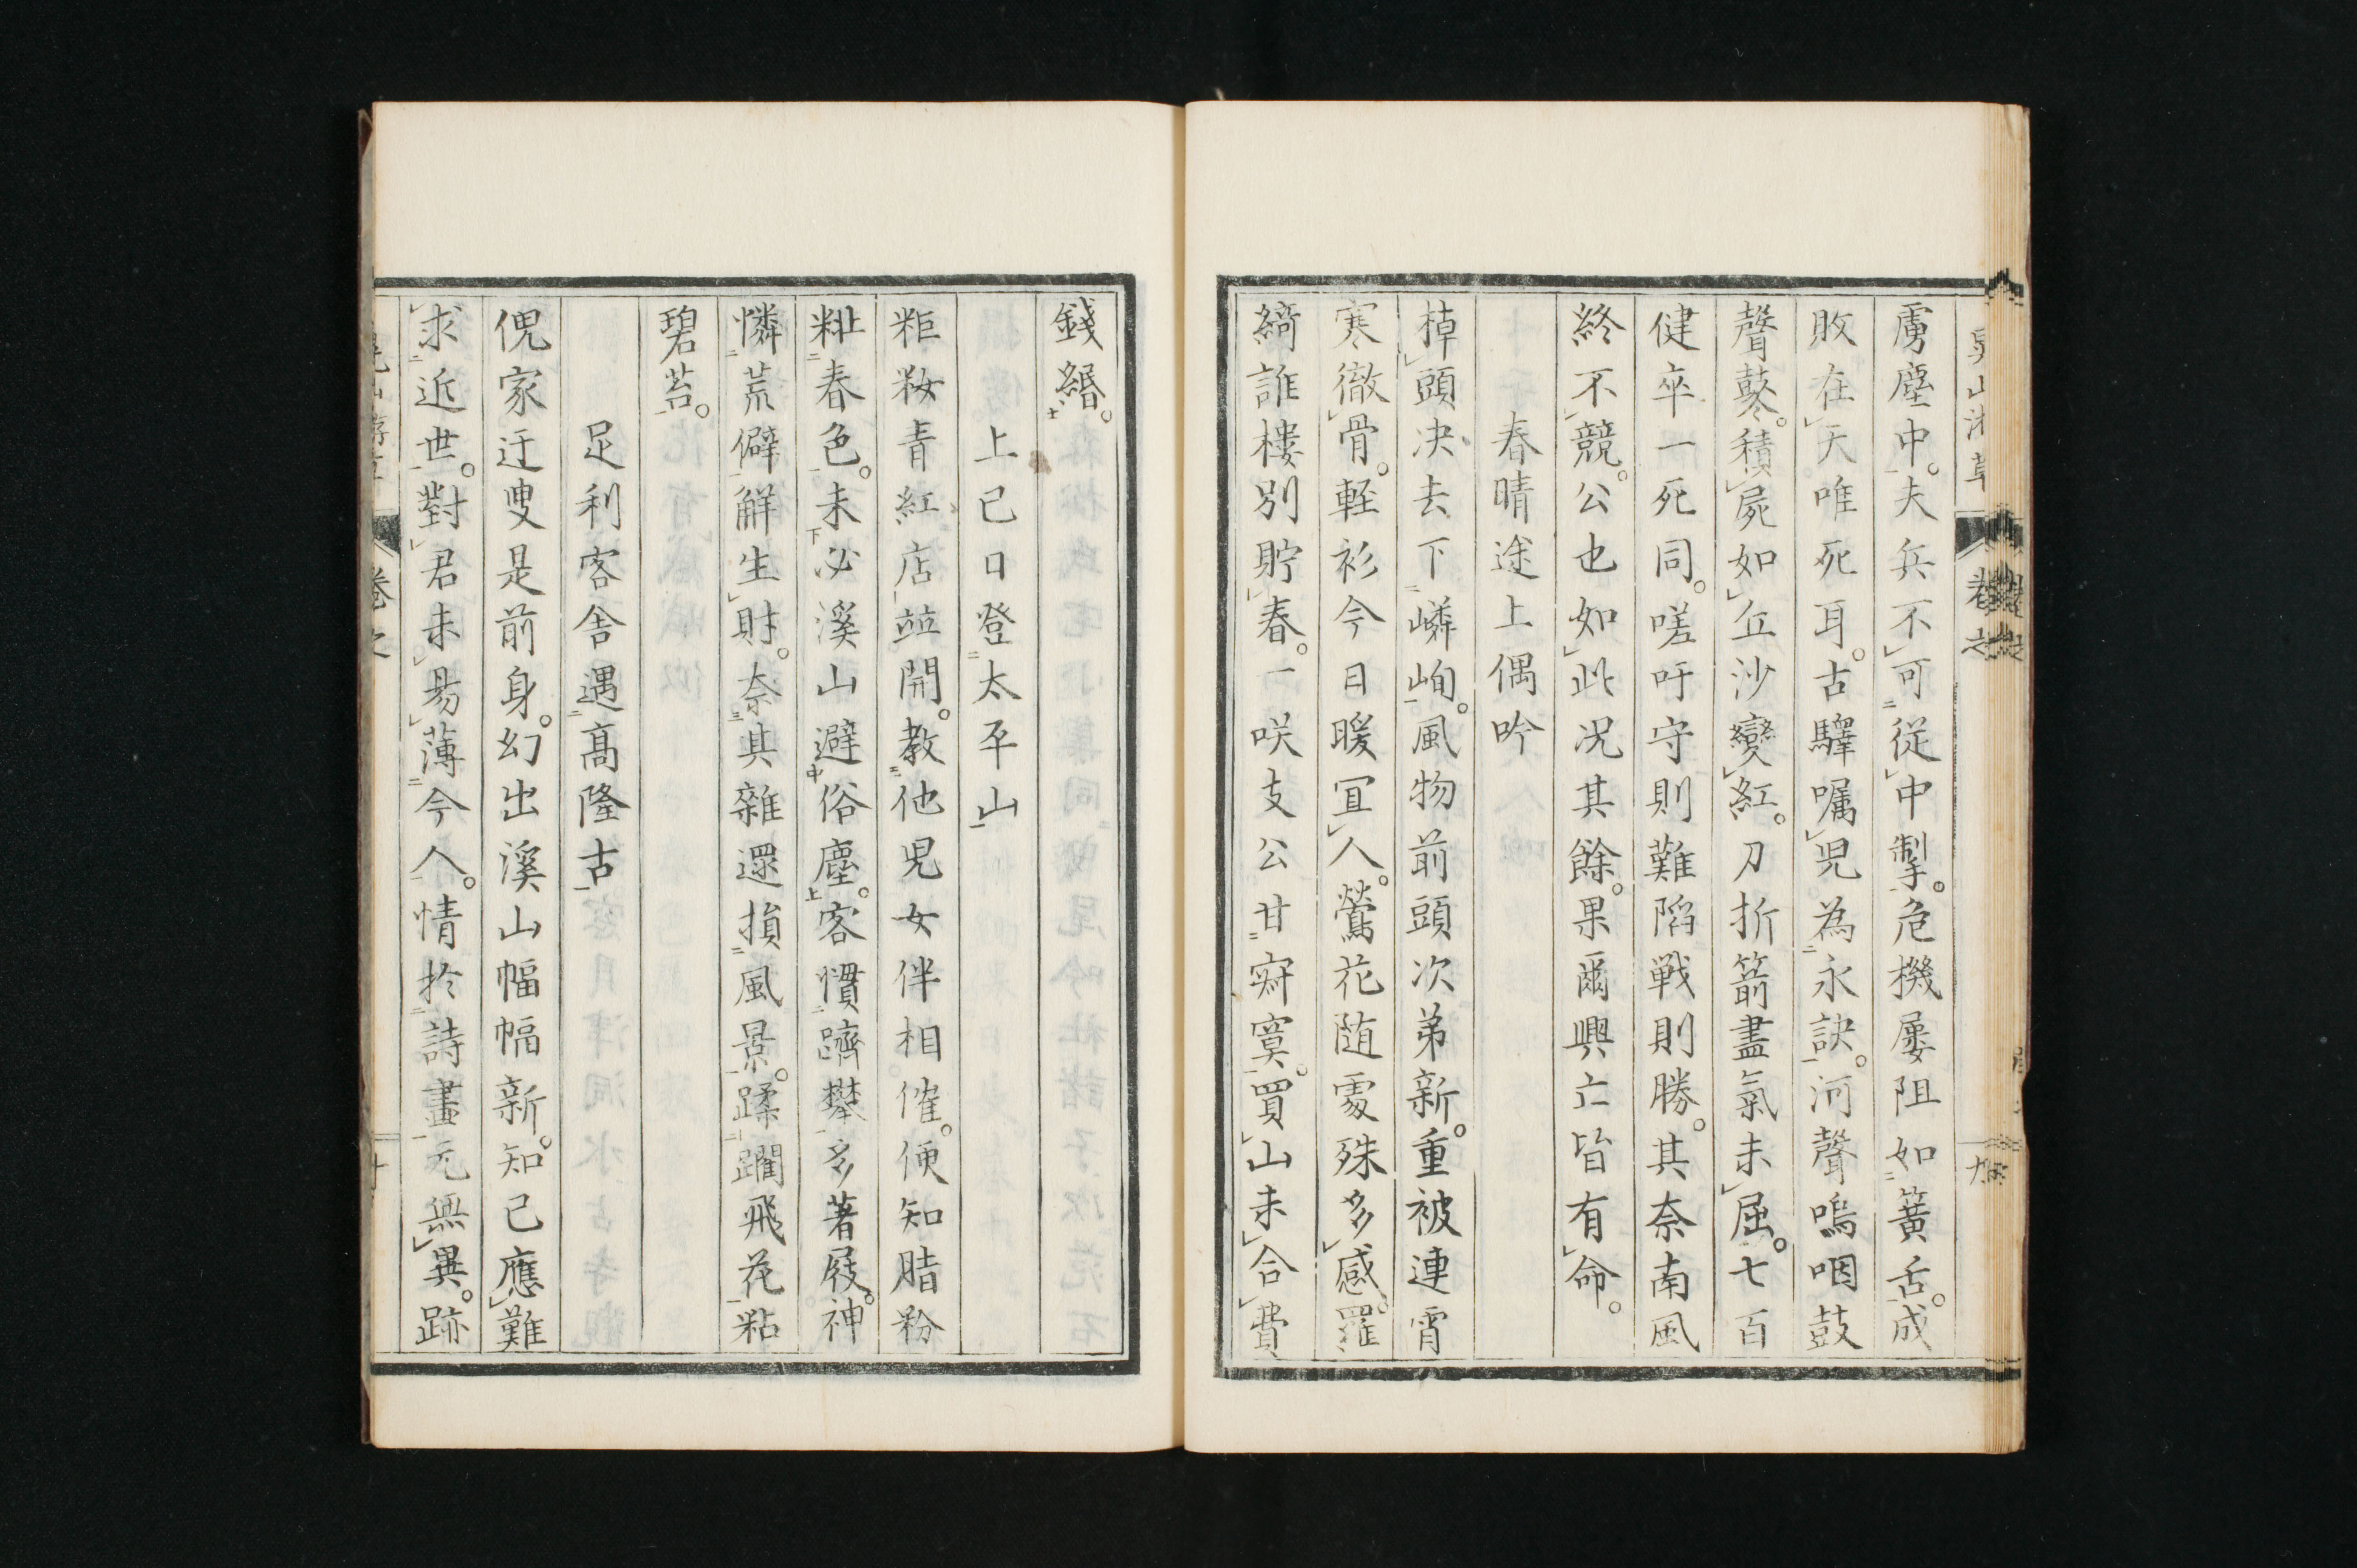 虜塵中。夫兵不可從中掣。危機屢阻如簧舌。成
敗在天唯死耳。古驛囑兒為永訣。河聲嗚咽鼓
聲鼕。積屍如丘沙變紅。刀折箭盡氣未屈。七百
健卒一死同。嗟吁守則難陷戦則勝。其奈南風
終不競。公也如此况其餘。果爾興亡皆有命。
春晴途上偶吟
掉頭决去下嶙峋。風物前頭次苐新。重被連宵
寒徹骨。軽衫今日暖冝人。鶯花随處殊多感。羅
綺誰樓別貯春。一咲支公甘寂寞。買山未合費
錢緡。
上巳日登太平山
粔籹青紅店並開。教他児女伴相催。便知脂粉
粃春色。未必溪山避俗塵。客慣躋攀多著屐。神
憐荒僻觧生財。奈其雜還損風景。蹂躙飛花粘
碧苔。
足利客舎遇髙隆古
倪家迂叟是前身。幻出溪山幅幅新。知己應難
求近世。對君未易薄今人。情於詩畫元無異。跡